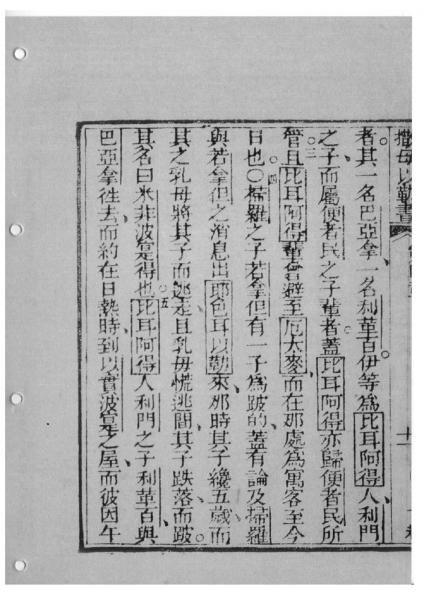 撒母以勒書
者其一名巴亞拿、一名利革百伊等為比耳阿得人利門
之子、而屬便者民之子輩者。蓋比耳阿得亦歸便者民所
管○三且比耳阿得輩曾避至厄大麥、而在那處為寓客至今
日也○四掃羅之子若拿但有一子為跛的、蓋有論及掃羅
與若拿但之消息出耶色耳以勒來、那時其子纔五歲、而
其之乳母將其子而逃走、且乳母慌逃間、其子跌落、而跛。
其名曰米非波寔得也○五比耳阿得人利門之子利革百與
巴亞拿徃去、而約在日熱時、到以實波寔之屋、而彼因午